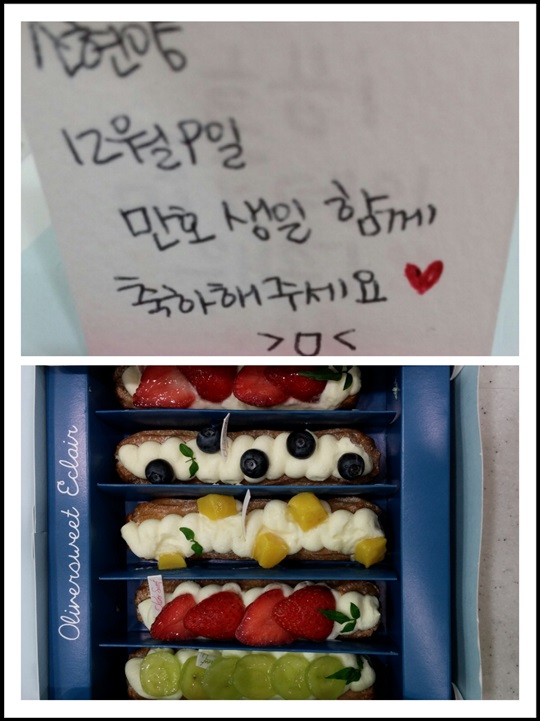 12월 9일
만호 생일 함께
축하해주세요 ♥
>ㅁ<
Oliversweet Eclair